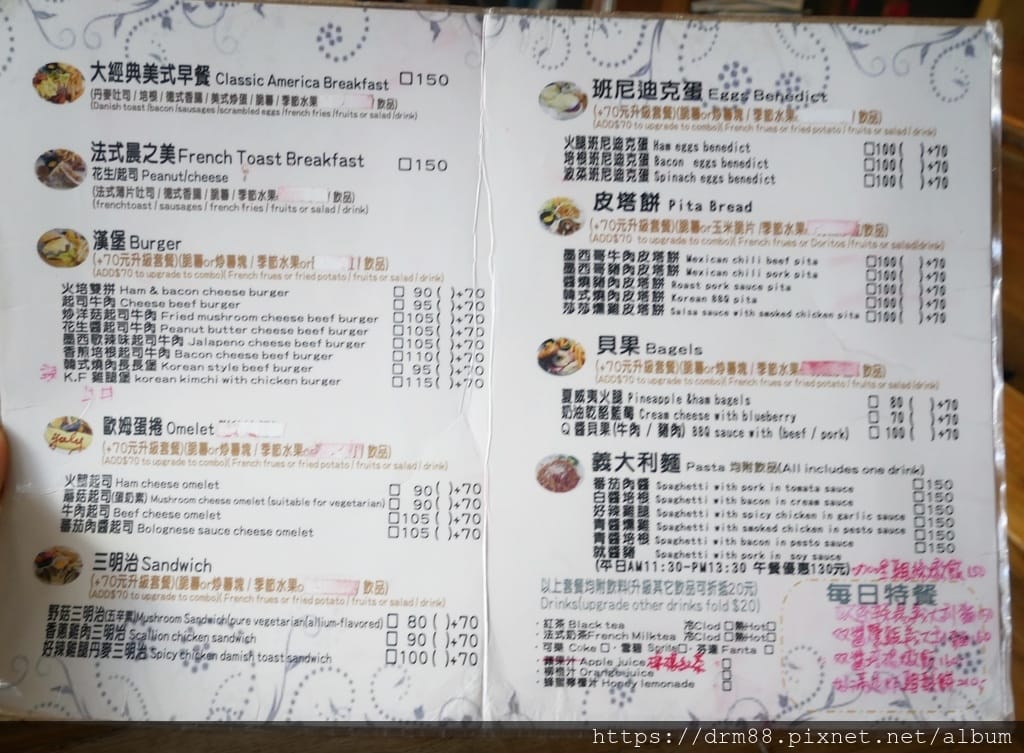 大經典美式早餐 Classic America Breakfast □150
(丹麥吐司 / 培根 / 德式香腸 / 美式炒蛋 / 脆薯 / 季節水果 / 飲品)
(Danish toast /bacon /sausages /scrambled eggs /french fries /fruits or salad /drink)
法式晨之美 French Toast Breakfast □150
花生/起司 Peanut/cheese
(法式薄片吐司 / 德式香腸 / 脆薯 / 季節水果 / 飲品)
(frenchtoast / sausages / french fries / fruits or salad / drink)
漢堡 Burger
(+70元升級套餐)(脆薯or炒薯塊 / 季節水果or / 飲品)
(ADD$70 to upgrade to combo)( French frues or fried potato / fruits or salad / drink)
火培雙拼 Ham & bacon cheese burger □ 90( )+70
起司牛肉 Cheese beef burger □ 95( )+70
炒洋菇起司牛肉 Fried mushroom cheese beef burger □105( )+70
花生醬起司牛肉 Peanut butter cheese beef burger □105( )+70
墨西歌辣味起司牛肉 Jalapeno cheese beef burger □105( )+70
香煎培根起司牛肉 Bacon cheese beef burger □110( )+70
韓式燒肉長長堡 Korean style beef burger □ 95( )+70
K.F 雞腿堡 korean kimchi with chicken burger □115( )+70
歐姆蛋捲 Omelet
(+70元升級套餐)(脆薯or炒薯塊 / 季節水果 / 飲品)
(ADD$70 to upgrade to combo)( French frues or fried potato / fruits or salad / drink)
火腿起司 Ham cheese omelet □ 90( )+70
蘑菇起司(蛋奶素) Mushroom cheese omelet (suitable for vegetarian) □ 90( )+70
牛肉起司 Beef cheese omelet □105( )+70
蕃茄肉醬起司 Bolognese sauce cheese omelet □105( )+70
三明治 Sandwich
(+70元升級套餐)(脆薯or炒薯塊 / 季節水果o / 飲品)
(ADD$70 to upgrade to combo)( French frues or fried potato / fruits or salad / drink)
野菇三明治(五辛素)Mushroom Sandwich(pure vegetarian(allium-flavored) □ 80( )+70
香蔥雞肉三明治 Scallion chicken sandwich □ 90( )+70
好辣雞腿丹麥三明治 Spicy chicken damish toast sandwich □100( )+70
班尼迪克蛋 Eggs Benedict
(+70元升級套餐)(脆薯or炒薯塊 / 季節水果 / 飲品)
(ADD$70 to upgrade to combo)( French frues or fried potato / fruits or salad /drink)
火腿班尼迪克蛋 Ham eggs benedict □100( )+70
培根班尼迪克蛋 Bacon eggs benedict □100( )+70
波菜班尼迪克蛋 Spinach eggs benedict □100( )+70
皮塔餅 Pita Bread
(+70元升級套餐)(脆薯or玉米脆片 /季節水果 /飲品)
(ADD$70 to upgrade to combo)( French frues or Doritos /fruits or salad/drink)
墨西哥牛肉皮塔餅 Mexican chili beef pita □100( )+70
墨西哥豬肉皮塔餅 Mexican chili pork pita □100( )+70
醬燒豬肉皮塔餅 Roast pork sauce pita □100( )+70
韓式燒肉皮塔餅 Korean BBQ pita □100( )+70
莎莎燻雞皮塔餅 Salsa sauce with smoked chicken pita □100( )+70
貝果 Bagels
(+70元升級套餐)(脆薯or炒薯塊 / 季節水果 / 飲品)
(ADD$70 to upgrade to combo)( French frues or fried potato / fruits or salad /drink)
夏威夷火腿 Pineapple &ham bagels □ 80 ( )+70
奶油乾酪藍莓 Cream cheese with blueberry □ 70 ( )+70
Q 醬貝果(牛肉 / 豬肉) BBQ sauce with (beef / pork) □ 100 ( )+70
義大利麵 Pasta 均附飲品(All includes one drink)
番茄肉醬 Spaghetti with pork in tomato sauce □150
白醬培根 Spaghetti with bacon in cream sauce □150
好辣雞腿 Spaghetti with spicy chicken in garlic sauce □150
青醬燻雞 Spaghetti with smoked chicken in pesto sauce □150
青醬培根 Spaghetti with bacon in pesto sauce □150
就醬豬 Spaghetti with pork in soy sauce □150
(平日AM11:30-PM13:30 午餐優惠130元)
以上套餐均附飲料(升級其它飲品可折抵20元)
Drinks(upgrade other drinks fold $20)
· 紅茶 Black tea 冷Clod □熱Hot□
· 法式奶茶French Milktea 冷Clod □熱Hot□
· 可樂 Coke □ · 雪碧 Sprite□ · 芬達 Fanta □
· 蘋果汁 Apple juice □
· 柳橙汁 Orange juice □
· 蜂蜜檸檬汁 Honey lemonade □
每日特餐
https://drm88.pixnet.net/album